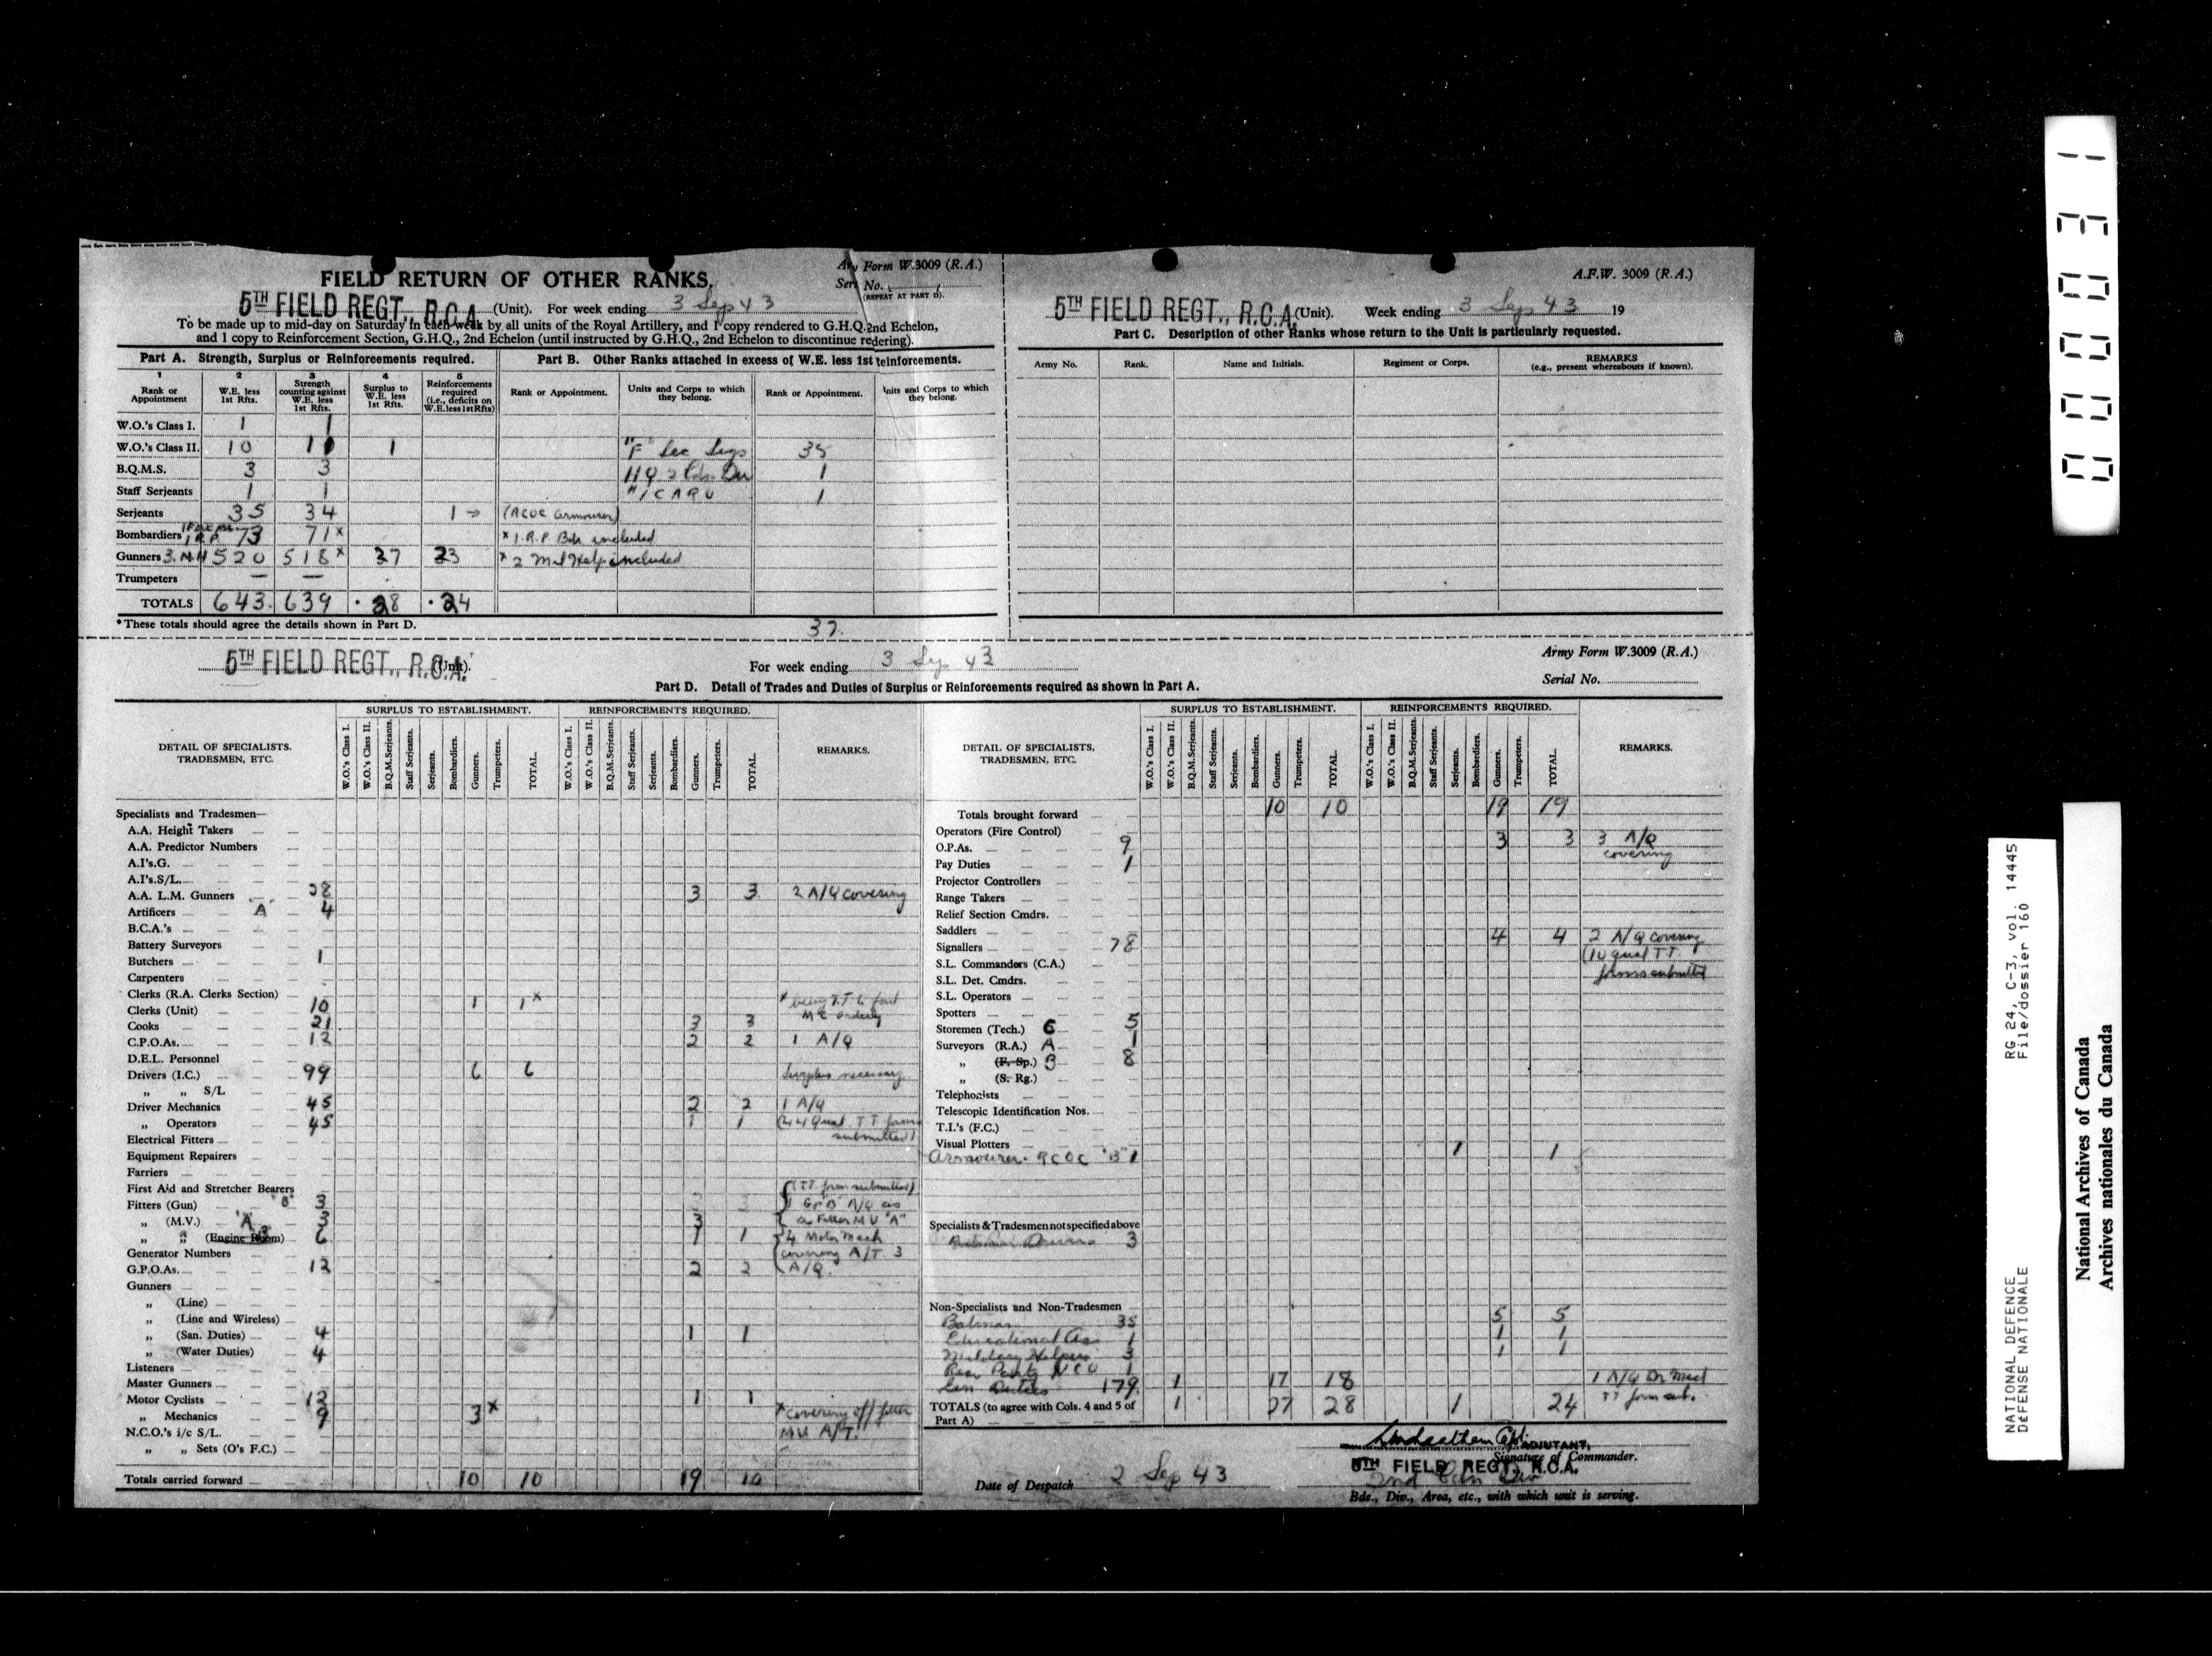 FIELD RETURN OF OTHER RANKS.
Army Form W.3009 (R.A.)
Serl No.
(REPEAT AT PART D).
5TH FIELD REGT., R.C.A. (Unit). For week ending 3 Sep 43
To be made up to mid-day on Saturday in each week by all units of the Royal Artillery, and 1 copy rendered to G.H.Q. 2nd Echelon,
and 1 copy to Reinforcement Section, G.H.Q., 2nd Echelon (until instructed by G.H.Q., 2nd Echelon to discontinue redering).
Part A. Strength, Surplus or Reinforcements required.
1 2 3 4 5
Rank or Appointment
W.E. less 1st Rfts.
Strength counting against W.E. less 1st Rfts.
Surplus to W.E. less 1st Rfts.
Reinforcements required (i.e., deficits on W.E. less 1st Rfts)
W.O.'s Class I. 1 1
W.O.'s Class II. 10 11 1
B.Q.M.S. 3 3
Staff Serjeants 1 1
Serjeants 35 34 1 → (RCOC Armourer)
Bombardiers 1 R.P. 73 71x x 1 R.P. Bdr included
Gunners 3. M.H 520 518x 27 23 x 2 Mil Help included
Trumpeters — —
TOTALS 643. 639 · 28 · 24
*These totals should agree the details shown in Part D.
Part B. Other Ranks attached in excess of W.E. less 1st reinforcements.
Rank or Appointment.
Units and Corps to which they belong.
Rank or Appointment.
Units and Corps to which they belong.
"F" Sec Sigs 35
HQ 2 Cdn Div 1
1 CARU 1
37.
A.F.W. 3009 (R.A.)
5TH FIELD REGT., R.C.A. (Unit). Week ending 3 Sep 43 19
Part C. Description of other Ranks whose return to the Unit is particularly requested.
Army No. Rank. Name and Initials. Regiment or Corps. REMARKS
(e.g., present whereabouts if known).
5TH FIELD REGT., R.C.A. (Unit). For week ending 3 Sep 43
Army Form W.3009 (R.A.)
Serial No.
Part D. Detail of Trades and Duties of Surplus or Reinforcements required as shown in Part A.
DETAIL OF SPECIALISTS, TRADESMEN, ETC.
SURPLUS TO ESTABLISHMENT.
W.O.'s Class I. W.O.'s Class II. B.Q.M.Serjeants. Staff Serjeants. Serjeants. Bombardiers. Gunners. Trumpeters. TOTAL.
REINFORCEMENTS REQUIRED.
W.O.'s Class I. W.O.'s Class II. B.Q.M.Serjeants. Staff Serjeants. Serjeants. Bombardiers. Gunners. Trumpeters. TOTAL.
REMARKS.
Specialists and Tradesmen—
A.A. Height Takers
A.A. Predictor Numbers
A.I's.G.
A.I's.S/L.
A.A. L.M. Gunners 28 3 3 2 A/Q covering
Artificers A 4
B.C.A.'s
Battery Surveyors
Butchers 1
Carpenters
Clerks (R.A. Clerks Section)
Clerks (Unit) 10 1 1x
Cooks 21 3 3
C.P.O.As. 12 2 2 1 A/Q
D.E.L. Personnel
Drivers (I.C.) 99 6 6 Surplus necessary
„ „ S/L
Driver Mechanics 45 2 2 1 A/Q
„ Operators 45 1 1 (44 Qual TT forms
submitted)
Electrical Fitters
Equipment Repairers
Farriers
First Aid and Stretcher Bearers (TT form submitted)
Fitters (Gun) "B" 3
„ (M.V.) "A" 3 3
„ „ (Engine Room) 6 1 1 4 Motor Mech
Generator Numbers covering A/T. 3
G.P.O.As. 12 2 2 A/Q.
Gunners
„ (Line)
„ (Line and Wireless)
„ (San. Duties) 4 1 1
„ (Water Duties) 4
Listeners
Master Gunners
Motor Cyclists 12 1 1
„ Mechanics 9 3x x covering off fitter
N.C.O.'s i/c S/L. MV A/T.
„ „ Sets (O's F.C.)
Totals carried forward 10 10 19 10
DETAIL OF SPECIALISTS, TRADESMEN, ETC.
SURPLUS TO ESTABLISHMENT.
W.O.'s Class I. W.O.'s Class II. B.Q.M.Serjeants. Staff Serjeants. Serjeants. Bombardiers. Gunners. Trumpeters. TOTAL.
REINFORCEMENTS REQUIRED.
W.O.'s Class I. W.O.'s Class II. B.Q.M.Serjeants. Staff Serjeants. Serjeants. Bombardiers. Gunners. Trumpeters. TOTAL.
REMARKS.
Totals brought forward 10 10 19 19
Operators (Fire Control)
O.P.As. 9 3 3 3 A/Q
covering
Pay Duties 1
Projector Controllers
Range Takers
Relief Section Cmdrs.
Saddlers
Signallers 78 4 4 2 A/Q covering
(10 qual TT.
forms submitted
S.L. Commanders (C.A.)
S.L. Det. Cmdrs.
S.L. Operators
Spotters
Storemen (Tech.) C 5
Surveyors (R.A.) A 1
„ (F. Sp.) B 8
„ (S. Rg.)
Telephonists
Telescopic Identification Nos.
T.I.'s (F.C.)
Visual Plotters
Armourer. RCOC "B" 1 1 1
Specialists & Tradesmen not specified above
Drivers 3
Non-Specialists and Non-Tradesmen
Batman 35 5 5
Educational Ass 1 1 1
Military Helpers 3 1 1
Rear Party NCO 1
Gen Duties 179. 1 17 18 1 A/Q Dr Mech
TOTALS (to agree with Cols. 4 and 5 of Part A) 1 27 28 1 24 TT form sub.
Date of Despatch 2 Sep 43
Capt
ADJUTANT,
Signature of Commander.
5TH FIELD REGT., R.C.A.
2nd Cdn Div
Bde., Div., Area, etc., with which unit is serving.
00031
RG 24, C-3, vol. 14445
File/dossier 160
NATIONAL DEFENCE
DÉFENSE NATIONALE
National Archives of Canada
Archives nationales du Canada